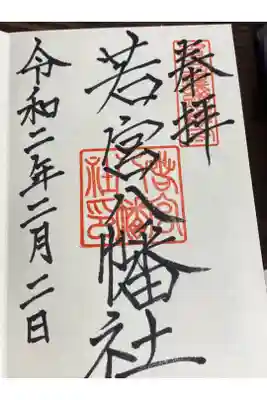 奉拝
若宮八幡社
令和二年二月二日
若宮八幡社印